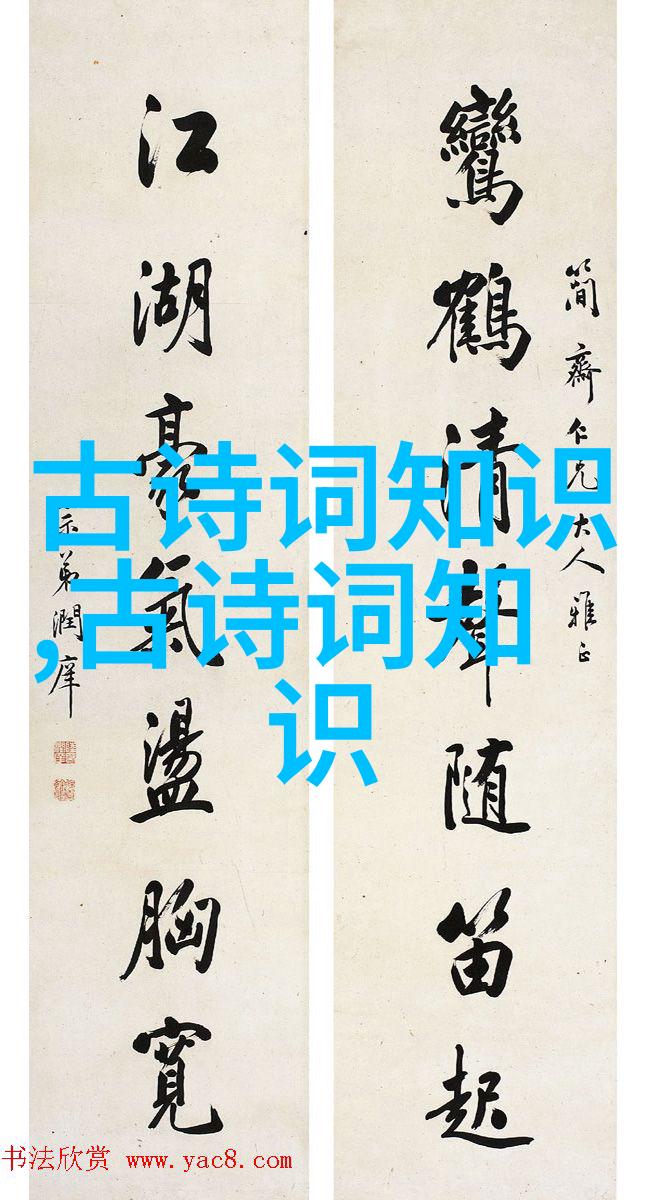 鸞鶴清聲随笛起
簡齋仁兄大人雅正
江湖豪氣盪胸寬
宗弟潤庠
古诗词知识
,古诗词知
识
书法欣赏 www.yac8.com